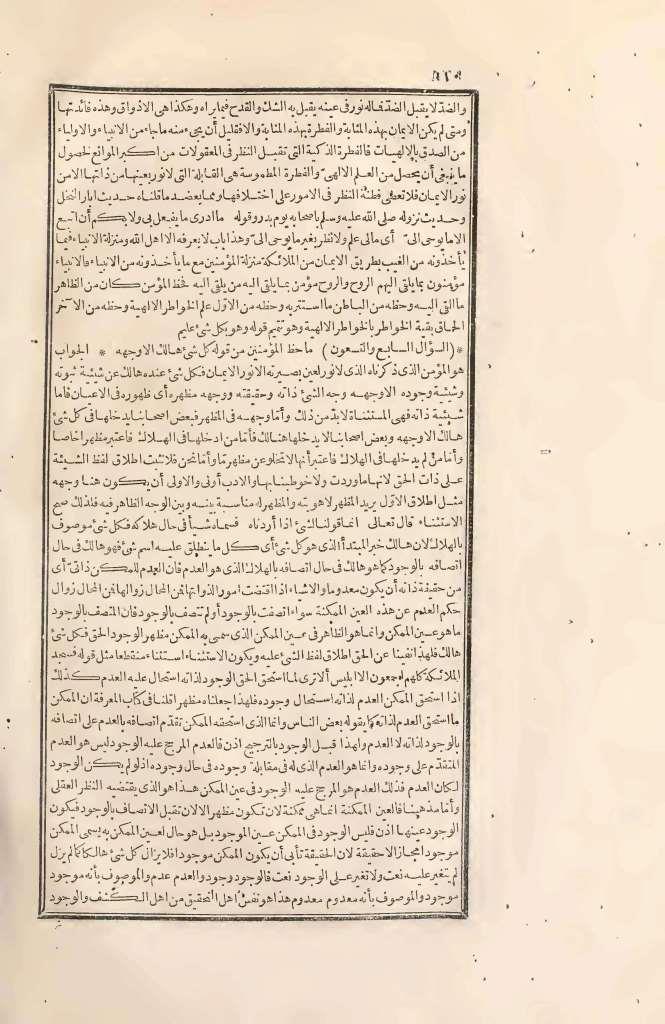 والضد لا يقبل الضد فماله نور في عينه يقبل به الشك والقدح فيما يراه وهكذا هي الاذواق وهذه فائدتها
ومتى لم يكن الايمان بهذه المثابة والفطرة بهذه المثابة والا فقليل أن يجىء منه ما جاء من الانبياء والاولياء
من الصدق بالالهيات فالفطرة الذكية التى تقبل النظر فى المعقولات من اكبر الموانع لحصول
ما ينبغى أن يحصل من العلم الالهىّ والفطرة المطموسة هى القابلة التى لا نور بعينها من ذاتها الا من
نور الايمان فلا تعطى فطنة النظر فى الامور على اختلافها ومما يعضد ما قلناه حديث ابار النخل
وحديث نزوله صلى الله عليه وسلم باصحابه يوم بدر وقوله ما ادرى ما يفعل بى ولا بكم أن اتبع
الا ما يوحى الىّ أى ما لى علم ولا نظر بغير ما يوحى الىّ وهذا باب لا يعرفه الا اهل الله ومنزلة الانبياء فيما
يأخذونه من الغيب بطريق الايمان من الملائكة منزلة المؤمنين مع ما يأخذونه من الانبياء فالانبياء
مؤمنون بما يلقى اليهم الروح والروح مؤمن بما يلقى اليه من يلقى اليه فحظ المؤمن كان من الظاهر
ما القى اليه وحظه من الباطن ما استتر به وحظه من الاول علم الخواطر الالهية وحظه من الآخر
الحاق بقية الخواطر بالخواطر الالهية وهو تتميم قوله وهو بكل شئ عليم
*(السؤال السابع والتسعون) ما حظ المؤمنين من قوله كل شئ هالك الا وجهه * الجواب
هو المؤمن الذى ذكرناه الذى لا نور لعين بصيرته الا نور الايمان فكل شئ عنده هالك عن شيئية ثبوته
وشيئية وجوده الا وجهه وجه الشئ ذاته وحقيقته ووجهه مظهره أى ظهوره فى الاعيان فاما
شيئية ذاته فهى المستثناة لا بدّ من ذلك وأما وجهه فى المظهر فبعض اصحابنا يدخلها فى كل شئ
هالك الا وجهه وبعض اصحابنا لا يدخلها هنالك فأما من ادخلها فى الهلاك فاعتبر مظهرا خاصا
وأما من لم يدخلها فى الهلاك فاعتبر أنها لا تخلو عن مظهر ما وأما نحن فلا نثبت اطلاق لفظ الشيئية
على ذات الحق لانها ما وردت ولا خوطبنا بها والادب أولى والاولى أن يكون هنا وجهه
مثل اطلاق الاول يريد المظهر لا هويته والمظهر له مناسبة بينه وبين الوجه الظاهر فيه فلذلك صح
الاستثناء قال تعالى انما قولنا لشئ اذا أردناه فسماه شيأ فى حال هلاكه فكل شئ موصوف
بالهلاك لان هالك خبر المبتدأ الذى هو كل شئ أى كل ما ينطلق عليه اسم شئ فهو هالك فى حال
اتصافه بالوجود كما هو هالك فى حال اتصافه بالهلاك الذى هو العدم فان العدم للممكن ذاتى أى
من حقيقة ذاته أن يكون معدوما والاشياء اذا اقتضت امورا لذواتها فمن المحال زوالها فمن المحال زوال
حكم العدم عن هذه العين الممكنة سواء اتصفت بالوجود أولم تتصف بالوجود فان المتصف بالوجود
ما هو عين الممكن وانما هو الظاهر فى عين الممكن الذى سمى به الممكن مظهر الوجود الحق فكل شئ
هالك فلهذا نفينا عن الحق اطلاق لفظ الشئ عليه ويكون الاستثناء استثناء منقطعا مثل قوله فسجد
الملائكة كلهم اجمعون الا ابليس ألا ترى لما استحق الحق الوجود لذاته استحال عليه العدم كذلك
اذا استحق الممكن العدم لذاته استحال وجوده فلهذا جعلناه مظهرا قلنا فى كتاب المعرفة ان الممكن
ما استحق العدم لذاته كما يقوله بعض الناس وانما الذى استحقه الممكن تقدّم اتصافه بالعدم على اتصافه
بالوجود لذاته لا العدم ولهذا قبل الوجود بالترجيح اذن فالعدم المرجح عليه الوجود ليس هو العدم
المتقدّم على وجوده وانما هو العدم الذى له فى مقابلة وجوده فى حال وجوده اذ لو لم يكن الوجود
لكان العدم فذلك العدم هو المرجح عليه الوجود فى عين الممكن هذا هو الذى يقتضيه النظر العقلى
وأما مذهبنا فالعين الممكنة انما هى ممكنة لان تكون مظهرا لا لان تقبل الاتصاف بالوجود فيكون
الوجود عينها اذن فليس الوجود فى الممكن عين الموجود بل هو حال لعين الممكن به يسمى الممكن
موجودا مجازا لا حقيقة لان الحقيقة تأبى أن يكون الممكن موجودا فلا يزال كل شئ هالكا كما لم يزل
لم يتغير عليه نعت ولا تغير على الوجود نعت فالوجود وجود والعدم عدم والموصوف بأنه موجود
موجود والموصوف بأنه معدوم معدوم هذا هو نفس اهل التحقيق من اهل الكشف والوجود